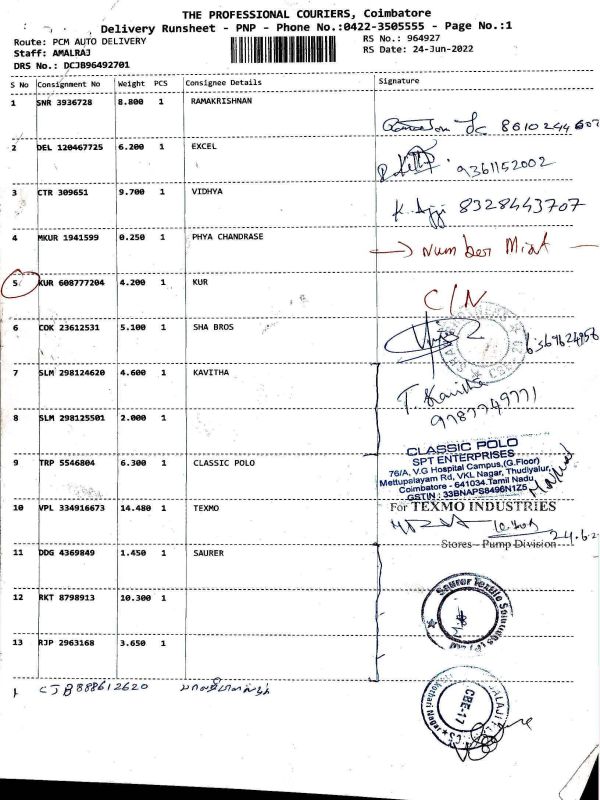 THE PROFESSIONAL COURIERS, Coimbatore
Delivery Runsheet - PNP - Phone No.:0422-3505555 - Page No.:1
Route: PCM AUTO DELIVERY
RS No.: 964927
Staff: AMALRAJ
RS Date: 24-Jun-2022
DRS No.: DCJB96492701
S No Consignment No Weight PCS Consignee Details Signature
1 SNR 3936728 8.800 1 RAMAKRISHNAN
8610244607
2 DEL 120467725 6.200 1 EXCEL
9361152002
3 CTR 309651 9.700 1 VIDHYA
8328443707
4 MKUR 1941599 0.250 1 PHYA CHANDRASE
Number Mist
5 KUR 608777204 4.200 1 KUR
C/N
6 COK 23612531 5.100 1 SHA BROS
7 SLM 298124620 4.600 1 KAVITHA
T. Kavitha
9787749771
8 SLM 298125501 2.000 1
9 TRP 5546804 6.300 1 CLASSIC POLO
CLASSIC POLO
SPT ENTERPRISES
76/A, V.G Hospital Campus,(G.Floor)
Mettupalayam Rd, VKL Nagar, Thudiyalur,
Coimbatore - 641034.Tamil Nadu
GSTIN : 33BNAPS8496N1Z5
10 VPL 334916673 14.480 1 TEXMO
For TEXMO INDUSTRIES
24.6.2
Stores - Pump Division
11 DDG 4369849 1.450 1 SAURER
Saurer Textile
12 RKT 8798913 10.300 1
13 RJP 2963168 3.650 1
CJB888612620
CBE-17